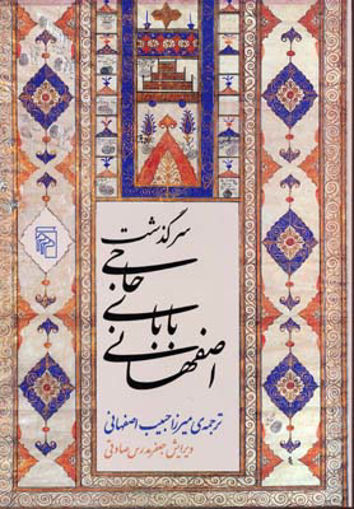 سرگذشت
حاجی
بابای
اصفهانی
ترجمه‌ی میرزا حبیب اصفهانی
ویرایش جعفر مدرس صادقی